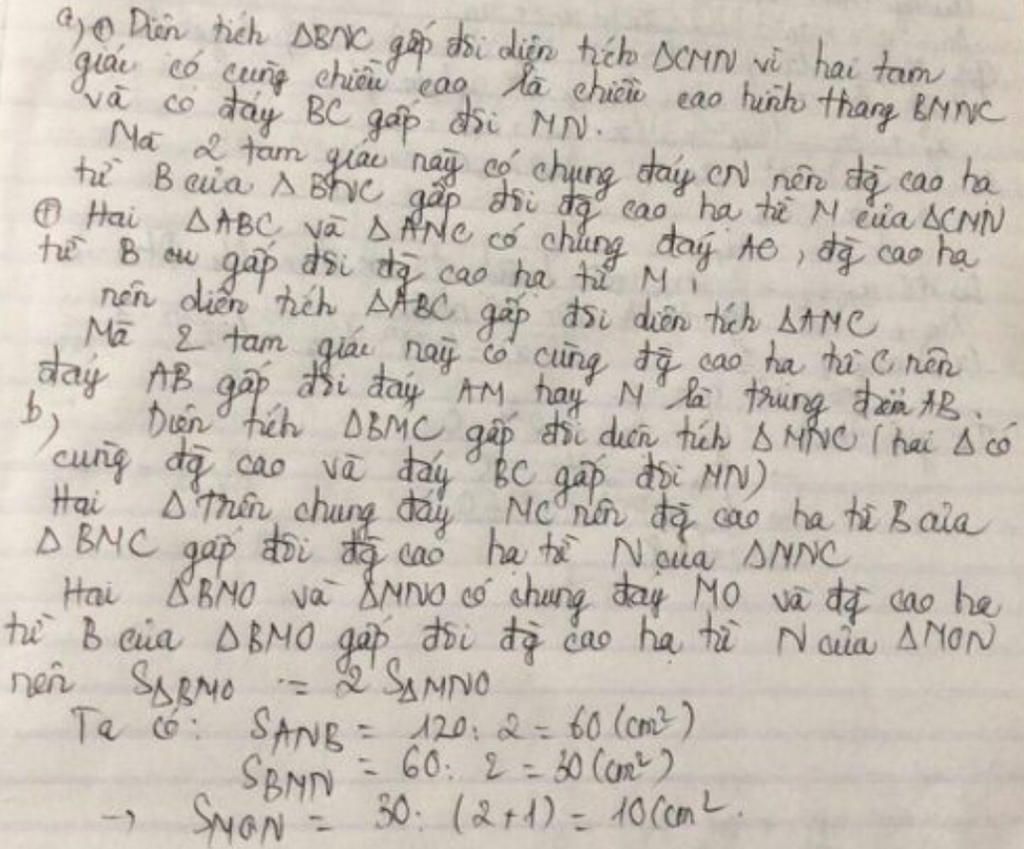 a, ⊕ Diện tích ΔBNC gấp đôi diện tích ΔCMN vì hai tam
giác có cùng chiều cao là chiều cao hình thang BMNC
và có đáy BC gấp đôi MN.
Mà 2 tam giác này có chung đáy CN nên độ cao hạ
từ B của ΔBNC gấp đôi độ cao hạ từ M của ΔCMN
⊕ Hai ΔABC và ΔAMC có chung đáy AC, độ cao hạ
từ B cu gấp đôi độ cao hạ từ M,
nên diện tích ΔABC gấp đôi diện tích ΔAMC
Mà 2 tam giác này có cùng độ cao hạ từ C nên
đáy AB gấp đôi đáy AM hay M là trung điểm AB.
b, Diện tích ΔBMC gấp đôi diện tích ΔMNC (hai Δ có
cùng độ cao và đáy BC gấp đôi MN)
Hai Δ trên chung đáy MC nên độ cao hạ từ B của
ΔBMC gấp đôi độ cao hạ từ N của ΔMNC
Hai ΔBMO và ΔMNO có chung đáy MO và độ cao hạ
từ B của ΔBMO gấp đôi độ cao hạ từ N của ΔMON
nên SΔBMO = 2 SΔMNO
Ta có: SANB = 120 : 2 = 60 (cm²)
SBMN = 60 : 2 = 30 (cm²)
→ SMON = 30 : (2+1) = 10 (cm².